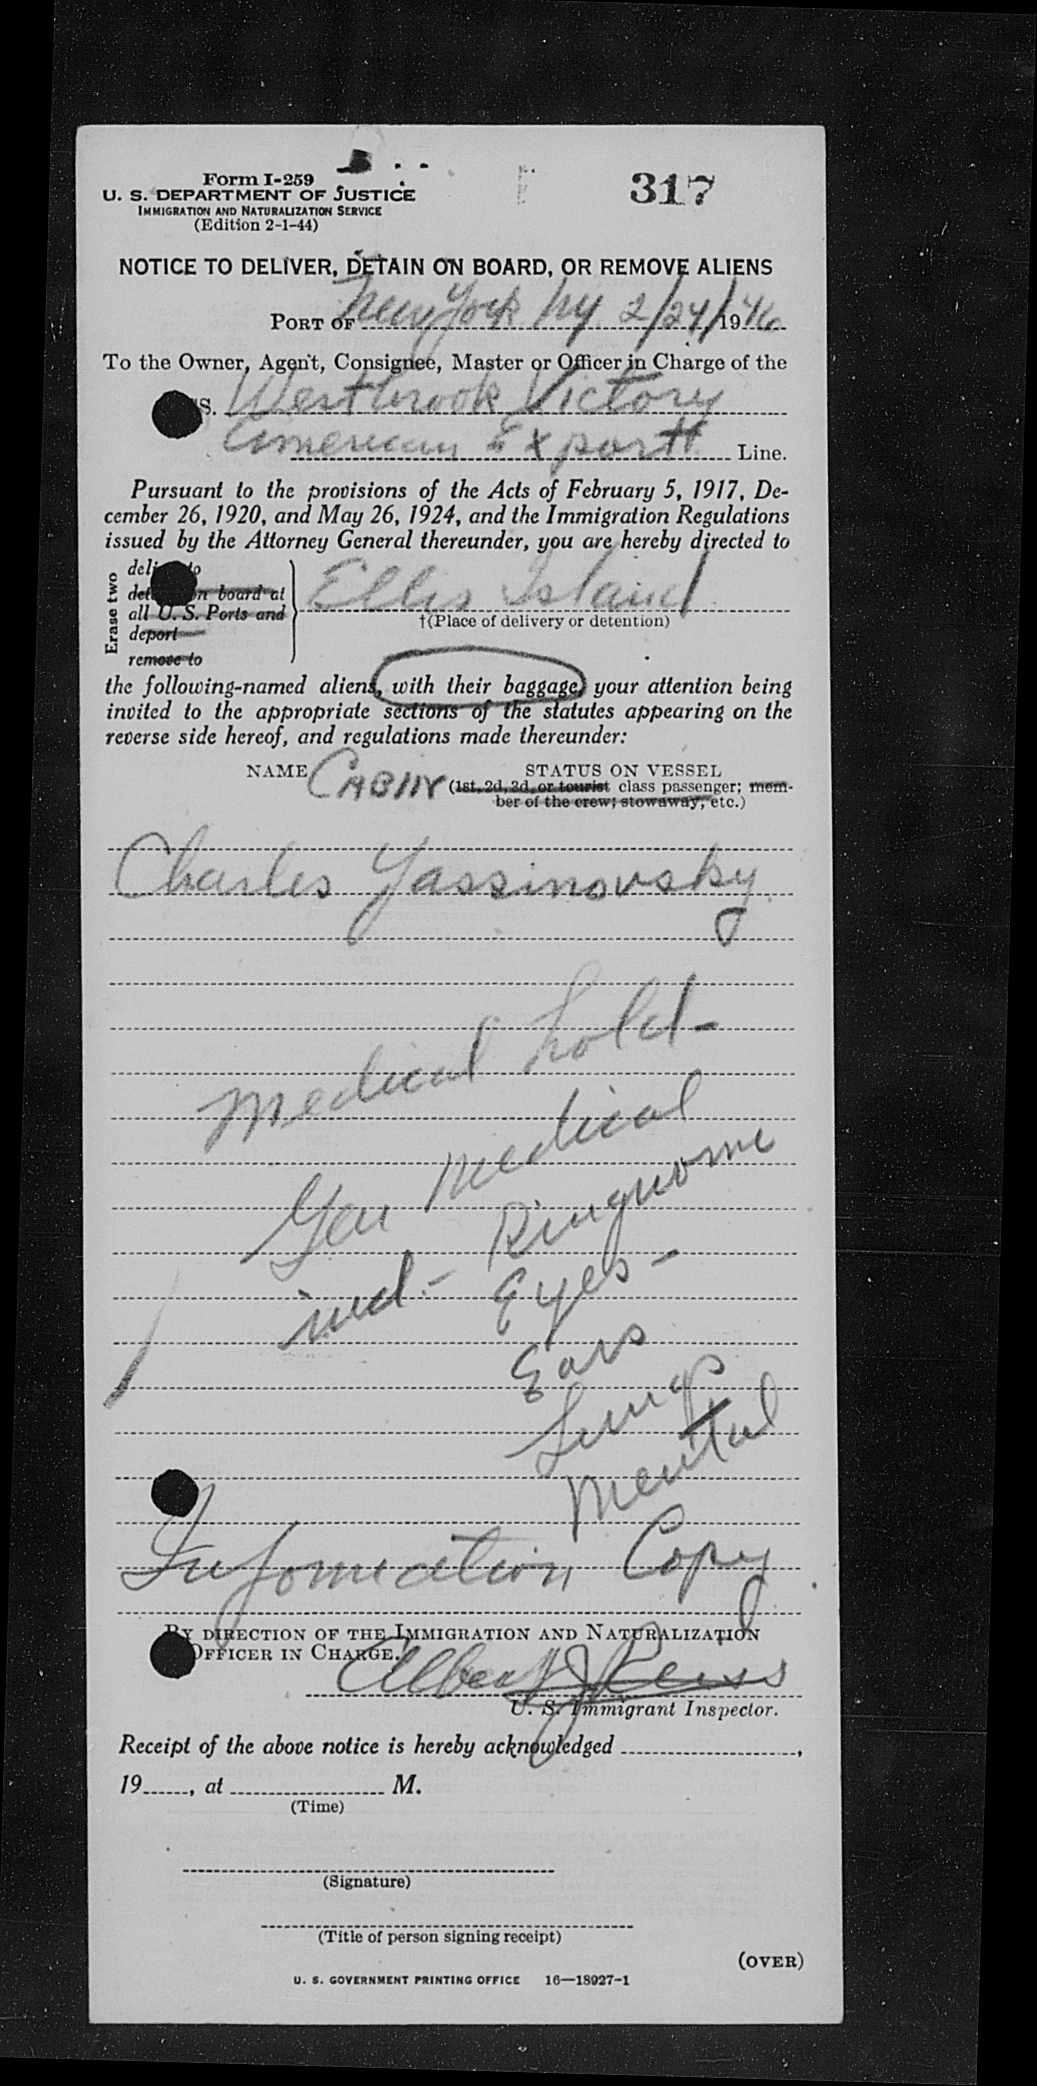 Form I-259
U. S. DEPARTMENT OF JUSTICE
IMMIGRATION AND NATURALIZATION SERVICE
(Edition 2-1-44)
317
NOTICE TO DELIVER, DETAIN ON BOARD, OR REMOVE ALIENS
PORT OF New York Ny 2/24/1946
To the Owner, Agent, Consignee, Master or Officer in Charge of the
S. Westbrook Victory
American Export Line.
Pursuant to the provisions of the Acts of February 5, 1917, De-
cember 26, 1920, and May 26, 1924, and the Immigration Regulations
issued by the Attorney General thereunder, you are hereby directed to
Erase two
deli to
det n board at
all U. S. Ports and
deport
remove to
Ellis Island
†(Place of delivery or detention)
the following-named aliens, with their baggage, your attention being
invited to the appropriate sections of the statutes appearing on the
reverse side hereof, and regulations made thereunder:
NAME CABIN STATUS ON VESSEL
(1st, 2d, 3d, or tourist class passenger; mem-
ber of the crew; stowaway, etc.)
Charles Yassinovsky
Medical hold-
Gen Medical
incl.- Ringworm
Eyes-
Ears
Lungs
Mental
Information Copy
BY DIRECTION OF THE IMMIGRATION AND NATURALIZATION
OFFICER IN CHARGE.
Albert J Reiss
U. S. Immigrant Inspector.
Receipt of the above notice is hereby acknowledged ,
19 , at M.
(Time)
(Signature)
(Title of person signing receipt)
(OVER)
U. S. GOVERNMENT PRINTING OFFICE 16—18927-1